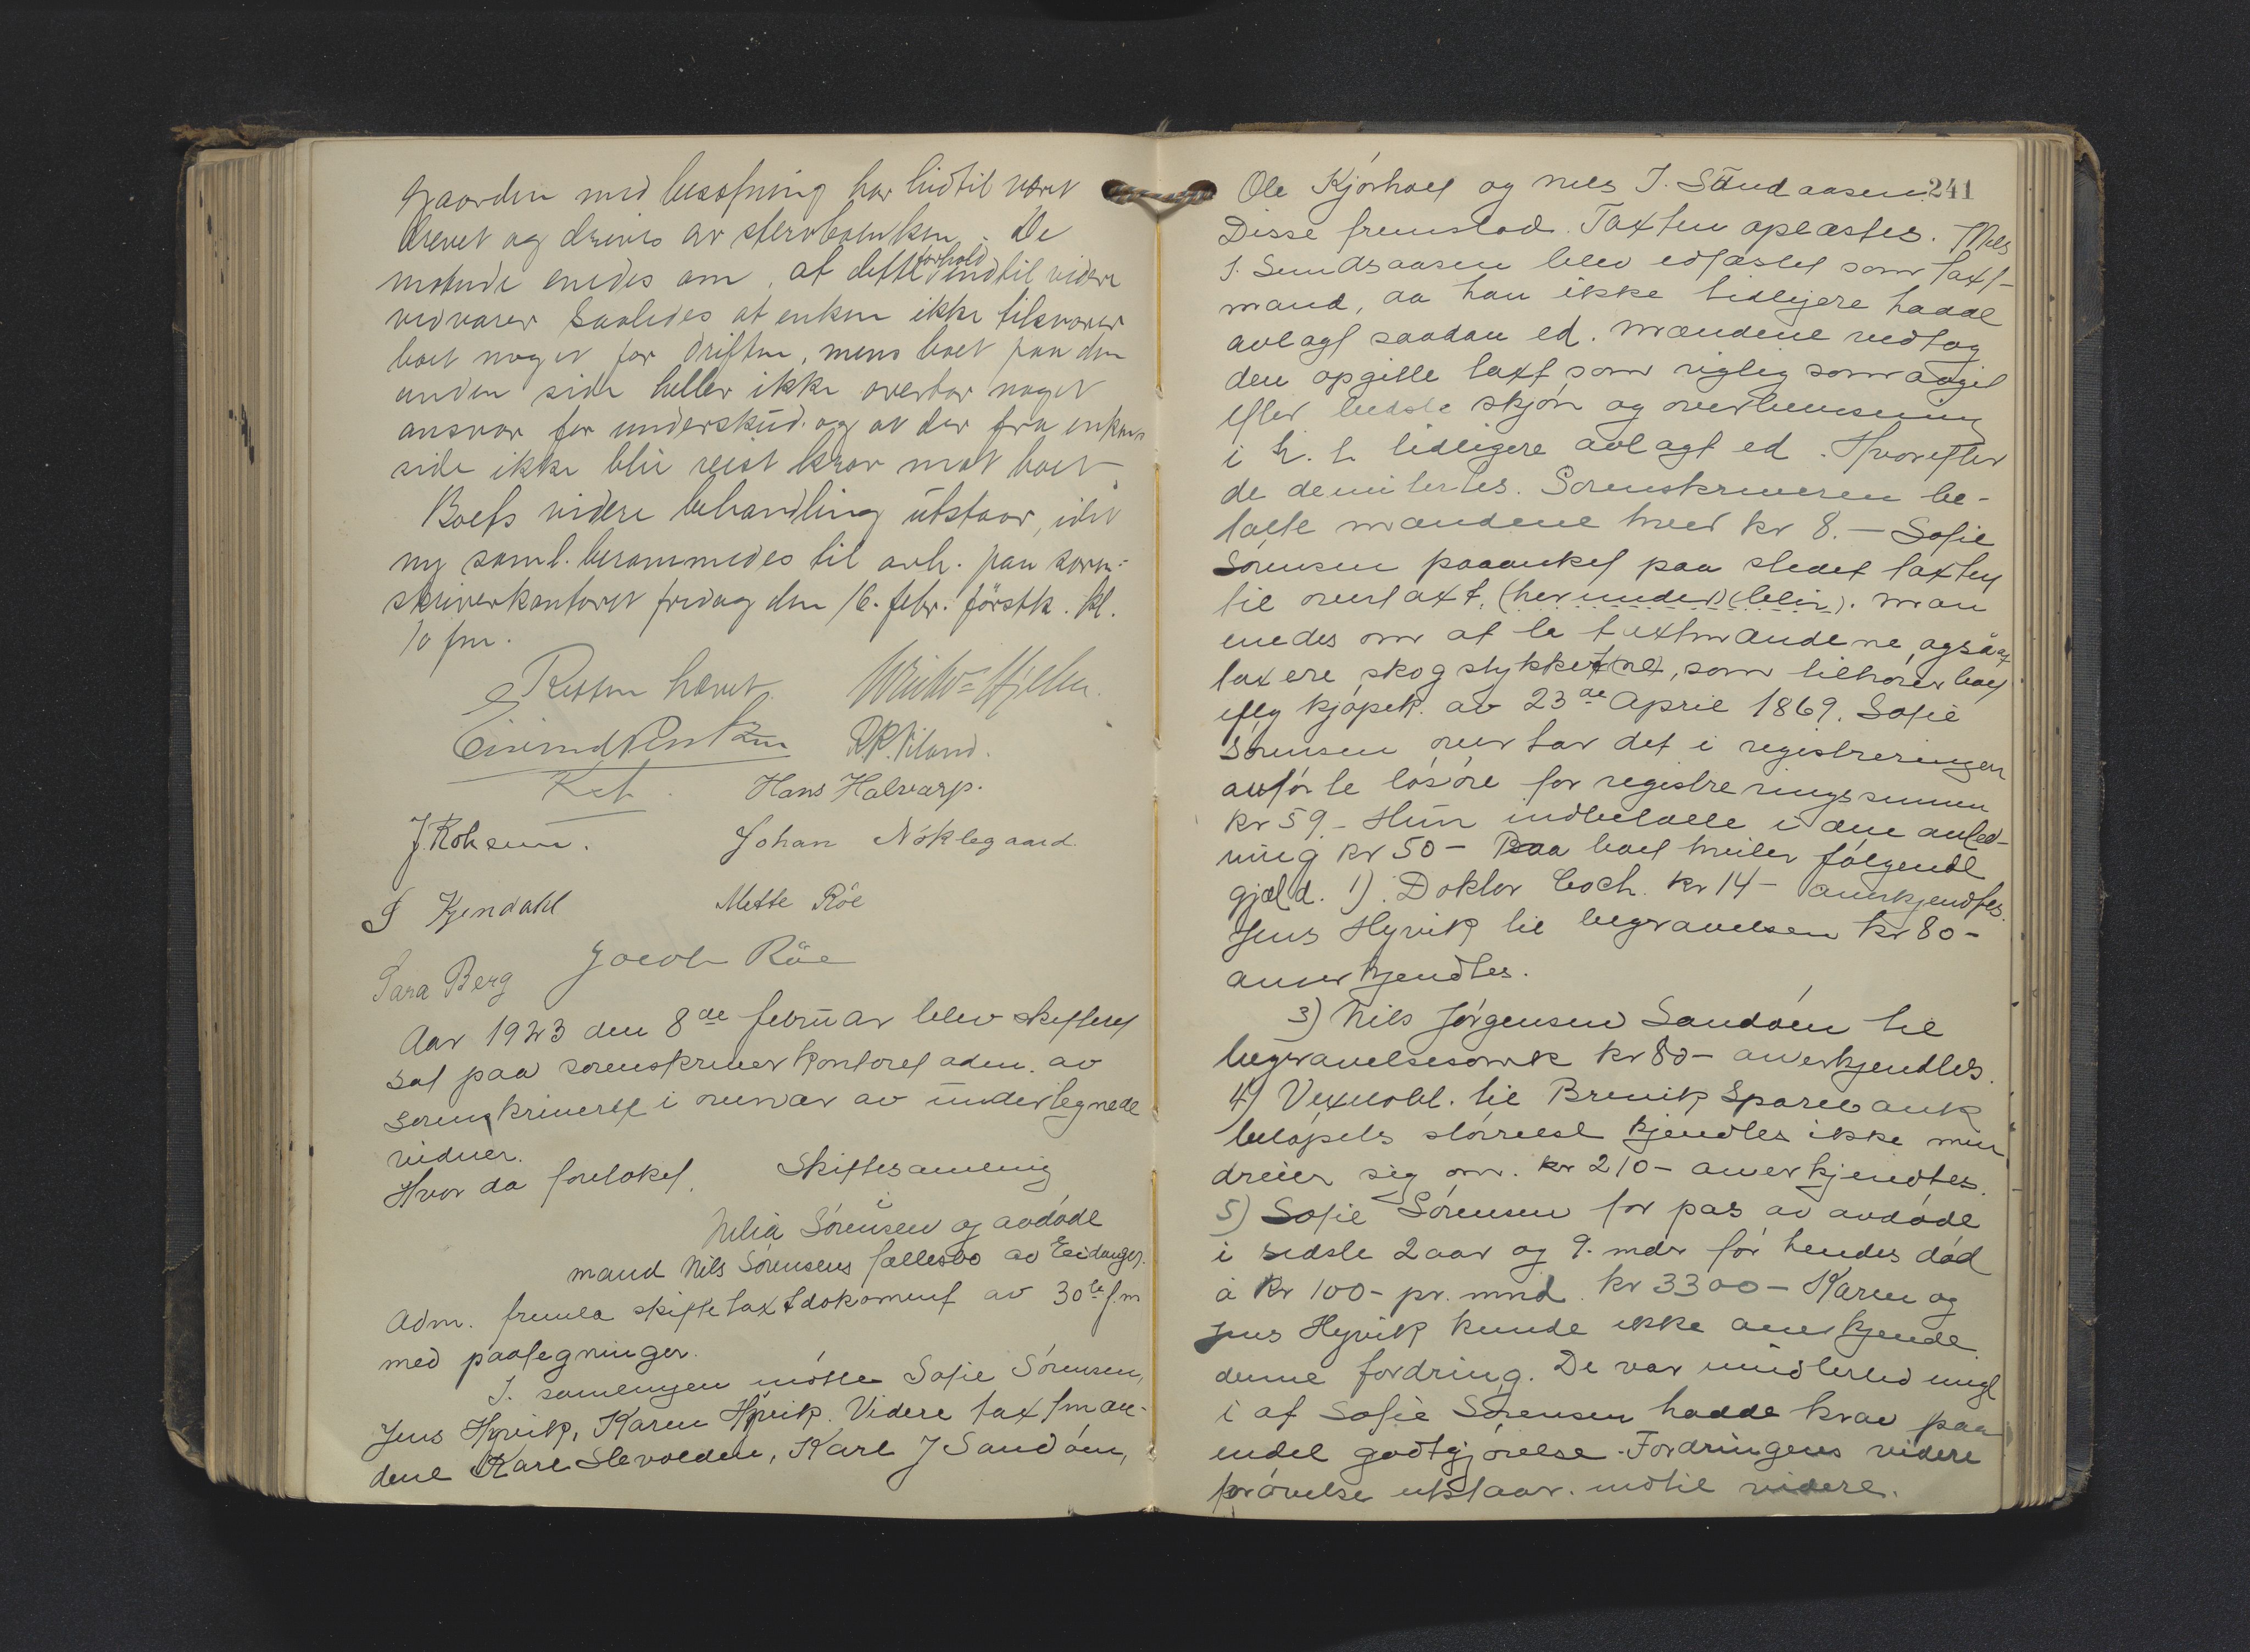 Gaarden med besætning har hidtil været
drevet og drives av stervboenken. De
møtende enedes om, at dette forhold indtil videre
vedvarer saaledes at enken ikke tilsvarer
boet noget for driften, mens boet paa den
anden side heller ikke overtar noget
ansvar for underskud og at der fra enkens
side ikke blir reist krav mot boet.
Boets videre behandling utstaar, idet
ny saml. berammedes til avh. paa soren-
skriverkontoret fredag den 16. febr. førstk. kl.
10 fm.
Retten hævet.
Hans Halvarp.
Johan Nøklegaard.
S Kjendahl Mette Röe
Sara Berg Jacob Röe
Aar 1923 den 8de februar blev skifteret
sat paa sorenskriverkontoret adm. av
sorenskriveren i overvær av undertegnede
vidner.
Hvor da foretokes. Skiftesamling
i
Sørensen og avdøde
mand Nils Sørensens fællesbo av Eidanger.
Adm. fremla skiftetaxtdokoment av 30te f.m
med paategninger.
I. samlingen møtte Sofie Sørensen,
Jens Hyvik, Karen Hyvik. Videre taxtmæn-
dene Karl Slevolden, Karl J Sandøen,
241
Ole Kjørholt og Nels J. Sundaasen.
Disse fremstod. Taxten oplæstes. Nels
J. Sundsaasen blev edfæstet som taxt-
mand, da han ikke tidligere hadde
avlagt saadan ed. Mændene vedtog
den opgitte taxt som rigtig som avgit
efter bedste skjøn og overbevisning
i h. t. tidligere avlagt ed. Hvorefter
de demitertes. Sorenskriveren be-
talte mændene hver kr 8.- Sofie
Sørensen paaanket paa stedet taxten
til overtaxt. (herunder) (blir). man
enedes om at la taxtmændene også
taxere skogstykket(ne), som tilhører boet
iflg kjøpek. av 23de April 1869. Sofie
Sørensen overtar det i registreringen
anførte løsøre for registreringssummen
kr 59.- Hun indbetalte i den anled-
ning kr 50- Paa boet hviler følgende
gjæld. 1). Doktor Coch. kr 14- anerkjendtes.
Jens Hyvik til begravelsen kr 80-
anerkjendtes.
3) Nils Jørgensen Sandøen til
begravelsesomk kr 80- anerkjendtes.
4) Vexelobl. til Brevik Sparebank
beløpets størrelse kjendtes ikke men
dreier sig om. kr 210- anerkjendtes.
5) Sofie Sørensen for pas av avdøde
i sidste 2 aar og 9. mdr før hendes død
à kr 100- pr. mnd. kr 3300- Karen og
Jens Hyvik kunde ikke anerkjende
denne fordring. De var imidlertid enige
i at Sofie Sørensen hadde krav paa
endel godtgjørelse. Fordringens videre
prøvelse utstaar. indtil videre.